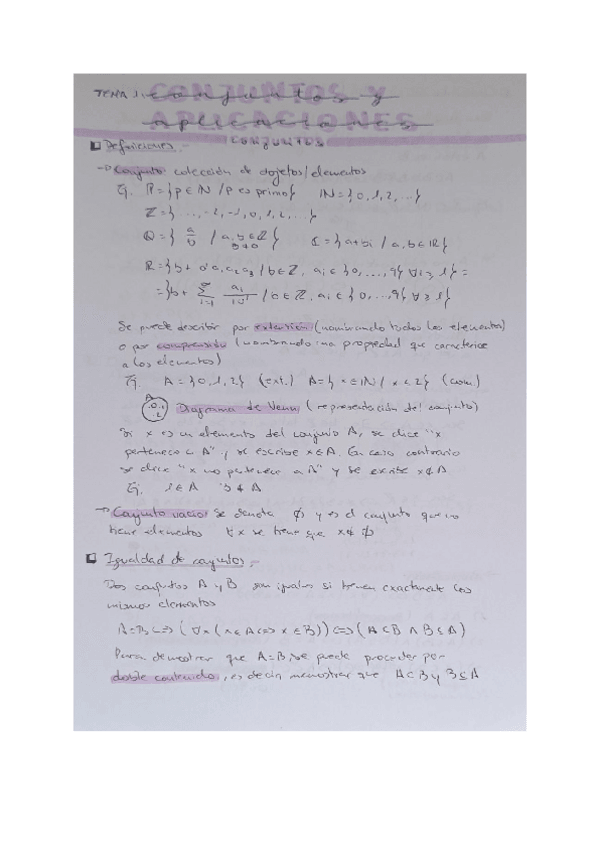 TEMA 1: CONJUNTOS Y
APLICACIONES
CONJUNTOS
Definiciones.-
→ Conjunto: colección de objetos/elementos
Ej. P = {p ∈ ℕ / p es primo} ℕ = {0, 1, 2, ...}
ℤ = {..., -2, -1, 0, 1, 2, ...}
ℚ = {a/b / a, b ∈ ℤ b≠0} ℂ = {a+bi / a, b ∈ ℝ}
ℝ = {b + 0'a₁a₂a₃ / b ∈ ℤ, aᵢ ∈ {0, ..., 9} ∀i ≥ 1} =
= {b + ∑ aᵢ/10ⁱ / b ∈ ℤ, aᵢ ∈ {0, ..., 9} ∀ ≥ 1}
Se puede describir por extensión (nombrando todos los elementos)
o por comprensión (nombrando una propiedad que caracterice
a los elementos)
Ej. A = {0, 1, 2} (ext.) A = {x ∈ ℕ / x ≤ 2} (com.)
A .0 .1 .2 Diagrama de Venn (representación del conjunto)
Si x es un elemento del conjunto A, se dice "x
pertenece a A" y se escribe x ∈ A. En caso contrario
se dice "x no pertenece a A" y se escribe x ∉ A
Ej. 1 ∈ A 3 ∉ A
→ Conjunto vacío: se denota ∅ y es el conjunto que no
tiene elementos ∀x se tiene que x ∉ ∅
Igualdad de conjuntos.-
Dos conjuntos A y B son iguales si tienen exactamente los
mismos elementos
A = B ⇔ (∀x (x ∈ A ⇔ x ∈ B)) ⇔ (A ⊆ B ∧ B ⊆ A)
Para demostrar que A = B, se puede proceder por
doble contenido, es decir, demostrar que A ⊆ B y B ⊆ A